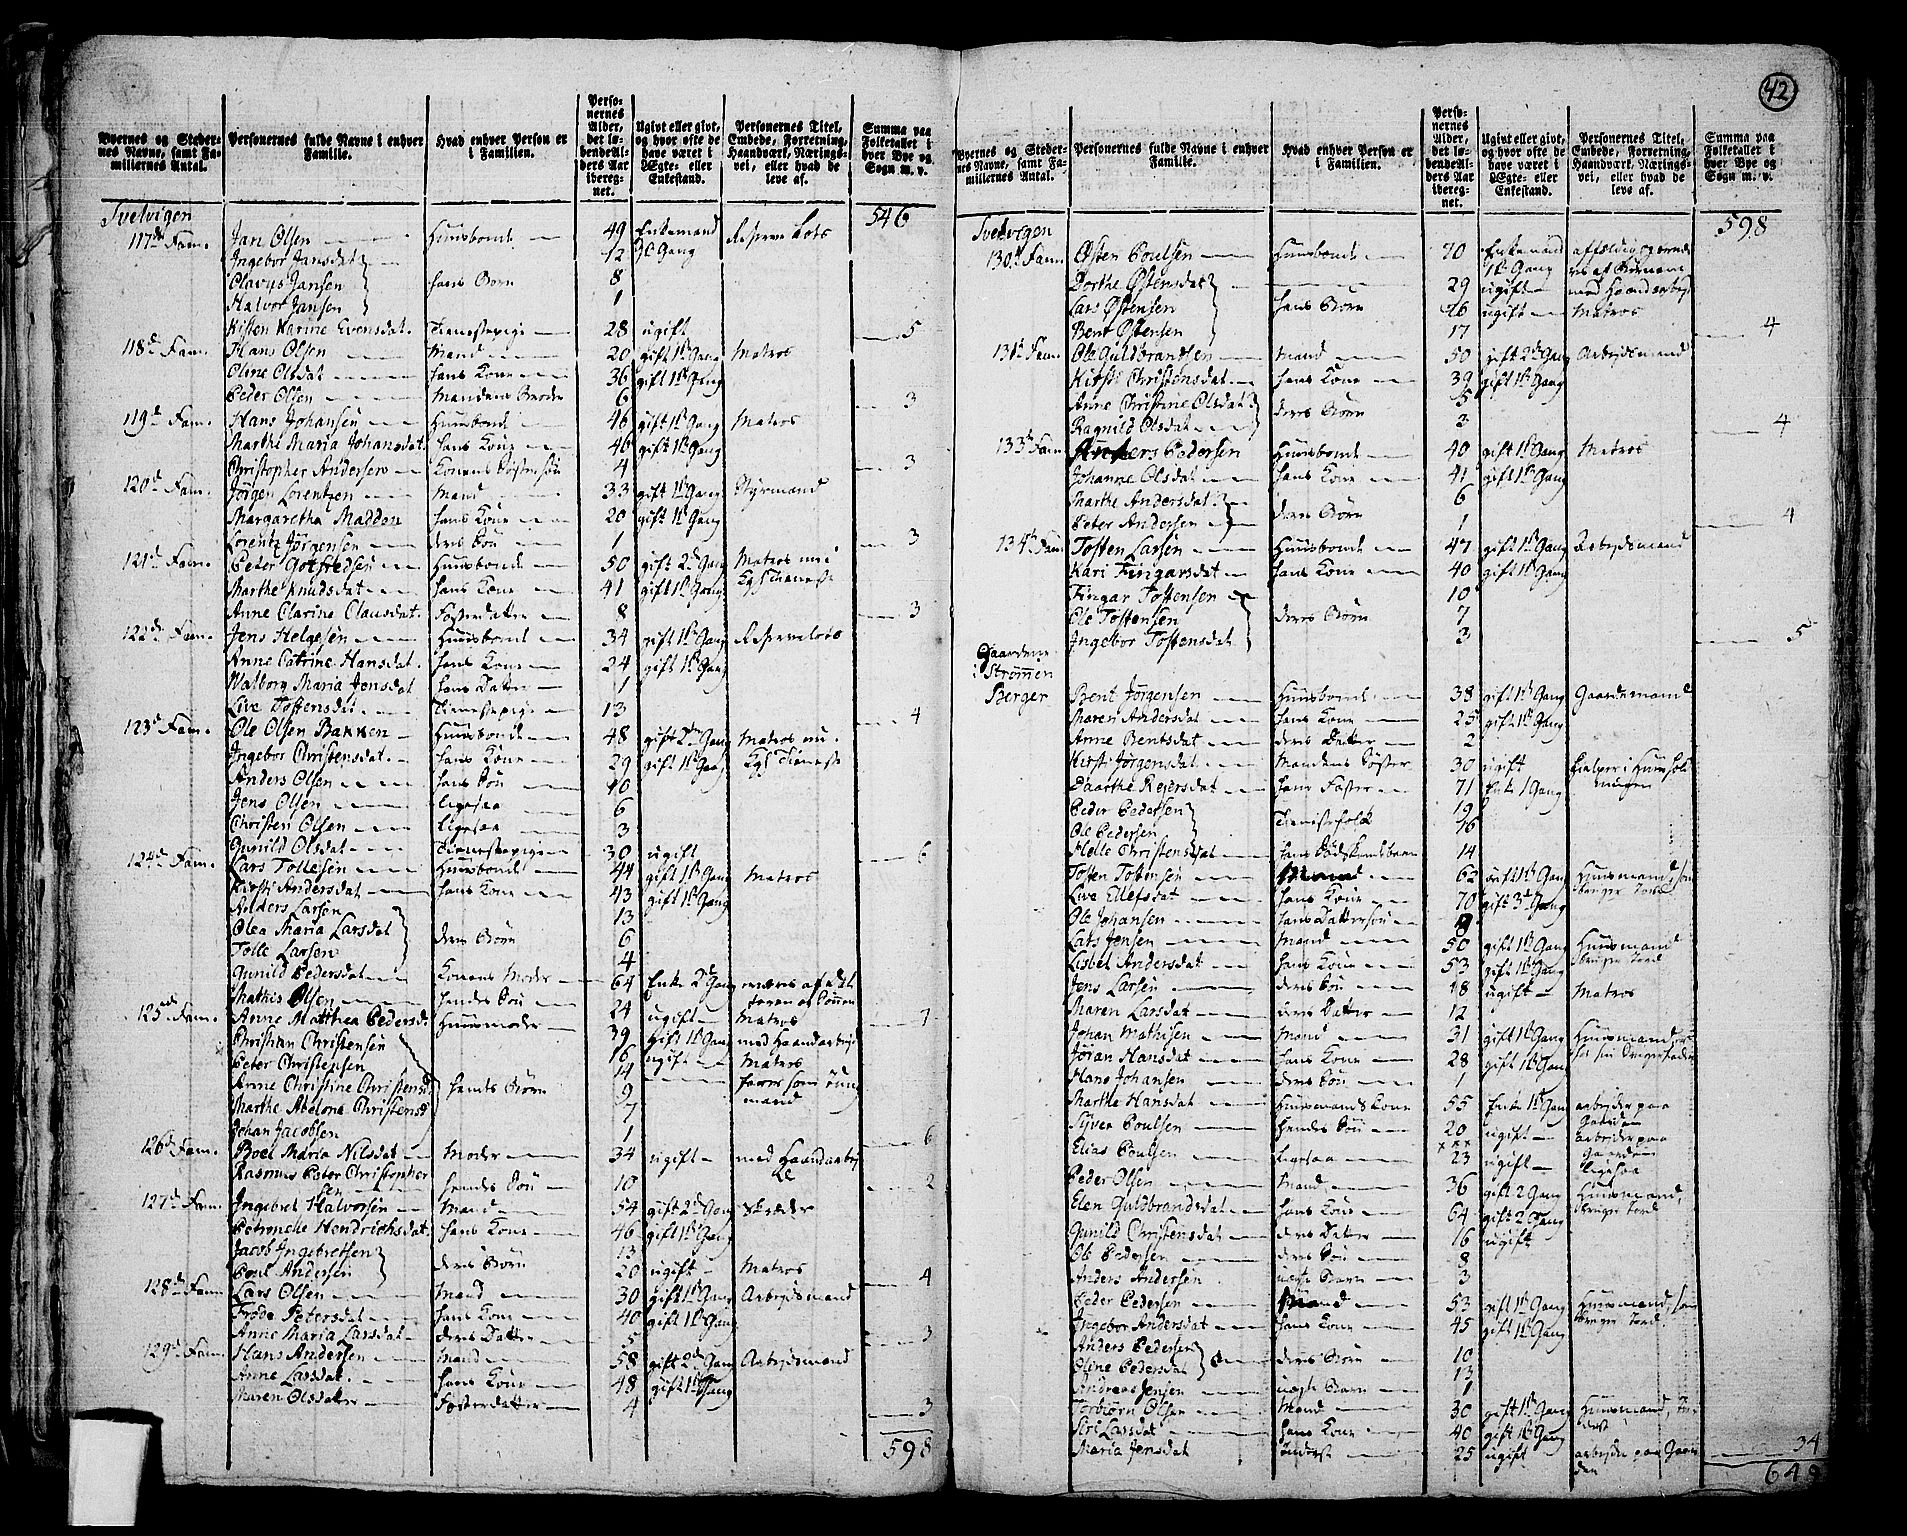 42
Byernes og Stedernes Navne, samt Familiernes Antal.
Personernes fulde Navne i enhver Familie.
Hvad enhver Person er i Familien.
Personernes Alder, det løbendeAlders Aar iberegnet.
Ugivt eller givt, og hvor ofte de have været i Ægte- eller Enkestand.
Personernes Titel, Embede, Forretning, Haandværk, Næringsvei, eller hvad de leve af.
Summa paa Folketallet i hver Bye og Sogn m. v.
Svelvigen 546
117de Fam. Jan Olsen Huusbonde 49 Enkemand Reserve Lots
Ingebor Jansdat 12 2de Gang
Olavus Jansen hans Børn 8
Halvor Jansen 1
Kisten Karine Evensdat. Tienestepige 28 ugift 5
118de Fam. Hans Olsen Mand 20 gift 1ste Gang Matros
Oline Olsdat hans Kone 36 gift 1ste Gang
Peder Olsen Mandens Broder 6 3
119de Fam. Hans Johansen Huusbonde 46 gift 1ste Gang Matros
Marthe Maria Johansdat. hans Kone 46 gift 1ste Gang
Christopher Andersen Konens Søstersøn 4 3
120de Fam. Jørgen Lorentzen Mand 33 gift 1ste Gang Styrmand
Margaretha Maddon hans Kone 20 gift 1ste Gang
Lorentz Jørgensen deres Søn 1 3
121de Fam. Peder Gotfredsen Huusbonde 50 gift 2den Gang Matros nu i
Marthe Knudsdat hans Kone 41 gift 1ste Gang Kgs Tieneste
Anne Clarine Clausdat. Fosterdatter 8 3
122de Fam. Jens Helgesen Huusbonde 34 gift 1ste Gang Reservelots
Anne Catrine Hansdat. hans Kone 24 gift 1ste Gang
Walborg Maria Jensdat hans Datter 1
Live Tostensdat. Tienestepige 13 4
123de Fam. Ole Olsen Bakken Huusbonde 48 gift 2den Gang Matros nu i
Ingebor Christensdat. hans Kone 29 gift 1ste Gang Kgs Tieneste
Anders Olsen hans Søn 10
Jens Olsen ligesaa 6
Christen Olsen ligesaa 3
Gunild Olsdat Tienestepige 30 ugift 6
124de Fam. Lars Tollesen Huusbonde 44 gift 1ste Gang Matros
Kirsti Andersdat hans Kone 43 gift 1ste Gang
Anders Larsen 13
Olea Maria Larsdat deres Børn 6
Tolle Larsen 4
Gunild Pedersdat Konens Moder 64 Enke 2den Gang
Mathis Olsen hendes Søn 24 ugift Matros 7
125de Fam. Anne Matthea Pedersd. Huusmoder 39 gift 1ste Gang med Haandarbejd
Christian Christensen 16 ugift Matros
Peter Christensen 14
Anne Christine Christensd. hendes Børn 9
Marthe Abelone Christensd 7
Johan Jacobsen 1 6
126de Fam. Boel Maria Nilsdat Moder 34 ugift med Haandarbej
Rasmus Peter Christopher
sen hendes Søn 10 2
127de Fam. Ingebret Halvorsen Mand 54 gift 2den Gang Skræder
Petronelle Hendrichsdat. hans Kone 46 gift 1ste Gang
Jacob Ingebretsen 13
Poul Andersen deres Børn 20 ugift Matros 4
128de Fam. Lars Olsen Mand 30 gift 1ste Gang Arbeydsmand
Frøde Petersdat hans Kone 40 gift 1ste Gang
Anne Maria Larsdat deres Datter 5 3
129de Fam. Hans Andersen Mand 58 gift 2den Gang Arbeydsmand
Anne Larsdat. hans Kone 48 gift 1ste Gang
Maren Olsdatter Fosterdatter 4 3
598
Byernes og Stedernes Navne, samt Familiernes Antal.
Personernes fulde Navne i enhver Familie.
Hvad enhver Person er i Familien.
Personernes Alder, det løbendeAlders Aar iberegnet.
Ugivt eller givt, og hvor ofte de have været i Ægte- eller Enkestand.
Personernes Titel, Embede, Forretning, Haandværk, Næringsvei, eller hvad de leve af.
Summa paa Folketallet i hver Bye og Sogn m. v.
Svelvigen 598
130te Fam. Østen Poulsen Huusbonde 70 Enkemand
1ste Gang
Dorthe Østensdat 29 ugift med Haandarbej
Lars Østensen hans Børn 26 ugift Matros
Bent Østensen 17 4
131te Fam. Ole Guldbrandsen Mand 50 gift 2den Gang Arbeydsmand
Kirsti Christensdat hans Kone 39 gift 1ste Gang
Anne Christine Olsdat 5
Ragnild Olsdat deres Børn 3 4
133te Fam. Anders Pedersen Huusbonde 40 gift 1ste Gang Matros
Johanne Olsdat hans Kone 41 gift 1ste Gang
Marthe Andersdat 6
Peter Andersen deres Børn 1 4
134te Fam. Tosten Larsen Huusbonde 47 gift 1ste Gang Arbejdsmand
Kari Fingarsdat hans Kone 40 gift 1ste Gang
Fingar Tostensen 10
Ole Tostensen deres Børn 7
Ingebor Tostensdat 3 5
Gaardene
i Strømmen
Berger Bent Jørgensen Huusbonde 38 gift 1ste Gang Gaardemand
Maren Andersdat hans Kone 25 gift 1ste Gang
Anne Bentsdat deres Datter 2
Kirsti Jørgensdat. Mandens Søster 30 ugift hielper i Huushold
ningen
Paarthe Rejersdat hans Faster 71 Enke 1 Gang
Peder Pedersen 19
Ole Pedersen Tienestefolk 16
Helle Christensdat 14
Tosten Tostensen Mand 62 gift 1ste Gang
Live Ellefsdat hans Kone 70 gift 3de Gang
Ole Johansen hans Dattersøn 8
Lars Jensen Mand 50 gift 1ste Gang Huusmand
Lisbet Andersdat hans Kone 53 gift 1ste Gang bruger Jord
Jens Larsen deres Søn 18 ugift Matros
Maren Larsdat deres Datter 12
Johan Mathisen Mand 31 gift 1ste Gang
Jøran Hansdat hans Kone 28 gift 1ste Gang
Hans Johansen deres Søn 1
Marthe Hansdat Huusmands Kone 55 Enke 1ste Gang arbejder paa
Gaarden
Syver Poulsen hendes Søn 20 ugift arbejder paa
Gaarden
Elias Poulsen ligesaa 23 ugift ligesaa
Peder Olsen Mand 36 gift 2 Gang Huusmand,
Elen Guldbrandsdat hans Kone 64 gift 2 Gang bruger Jord
Gunild Christensdat deres Datter 16 ugift
Ole Pedersen deres Søn 8
Anders Andersen 3
Peder Pedersen Mand 53 gift 1ste Gang
Ingebor Andersdat hans Kone 45 gift 1ste Gang bruger Jord
Anders Pedersen 10
Oline Pedersdat deres Børn 13
Andreas Jensen 1
Torbiørn Olsen Mand 30 gift 1ste Gang
Siri Larsdat hans Kone 40 gift 1ste Gang
Maria Jensdat 25 ugift arbejder paa Gaar
den 34
649